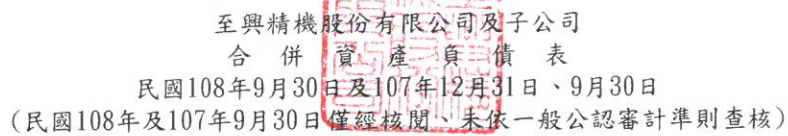 至興精機股份有限公司及子公司
合併資產負債表
民國108年9月30日及107年12月31日、9月30日
(民國108年及107年9月30日僅經核閱、未依一般公認審計準則查核)